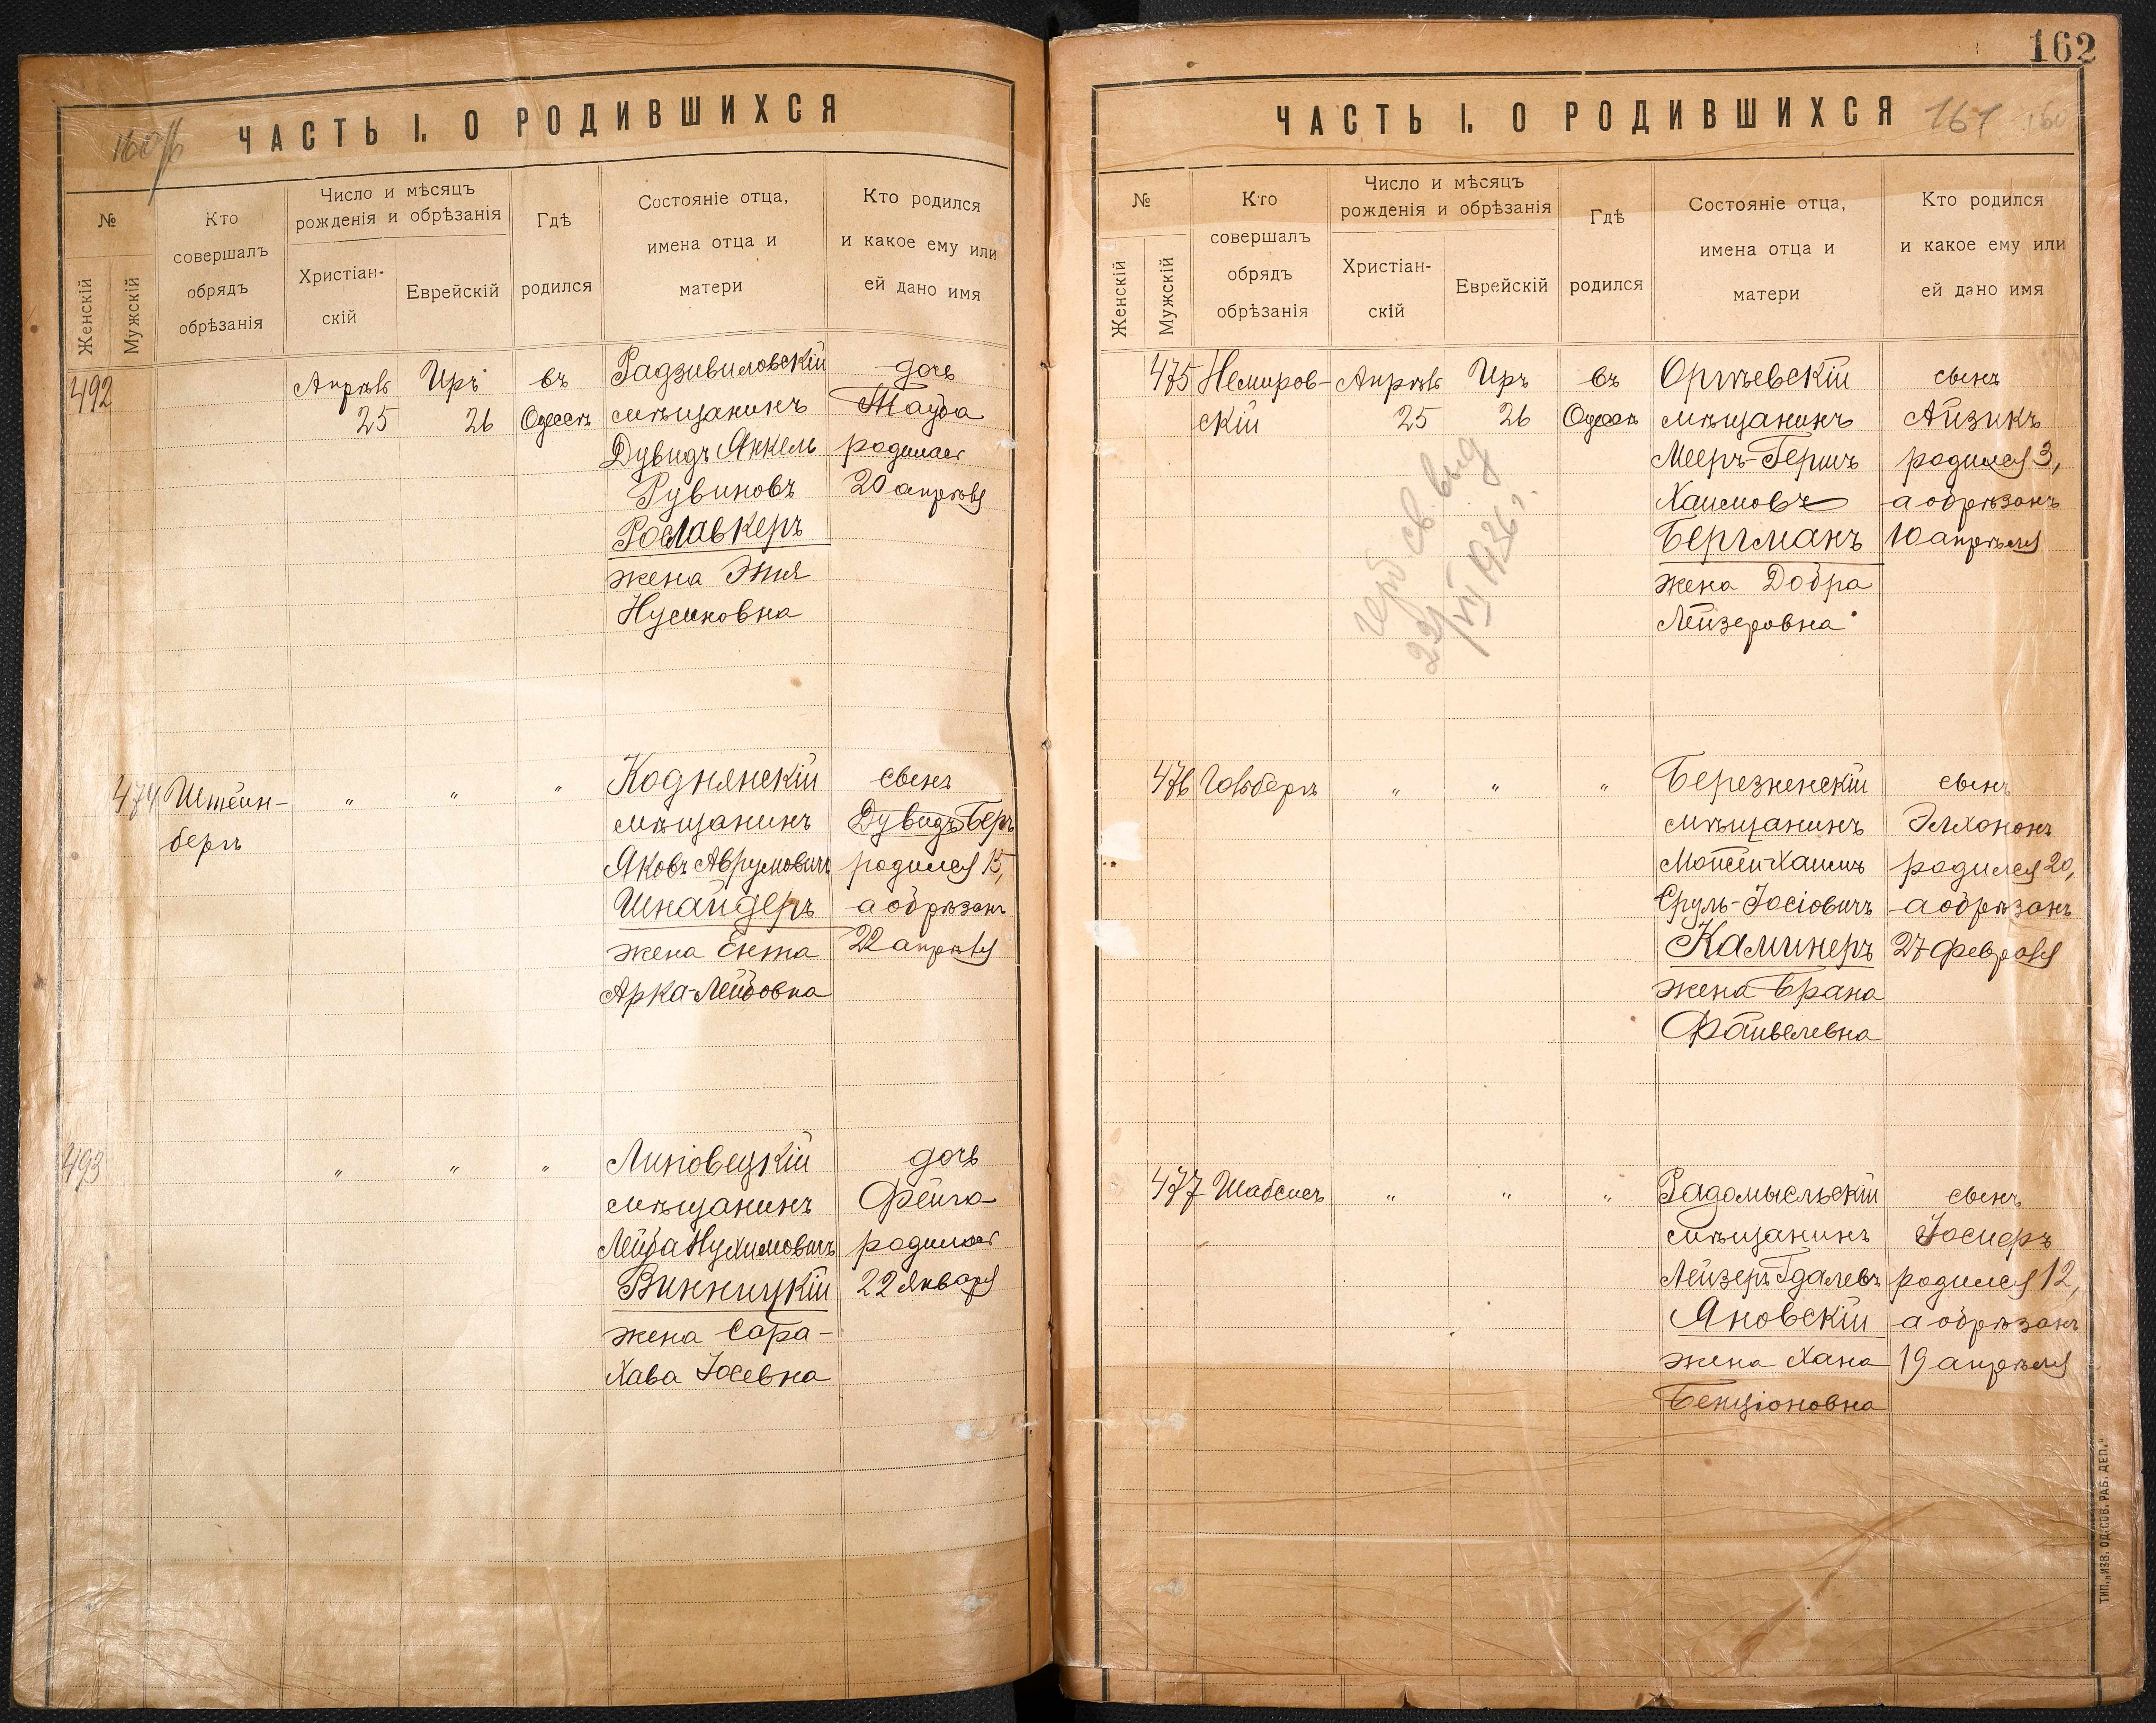 160об
ЧАСТЬ I. О РОДИВШИХСЯ
№
Женскій
Мужскій
Кто
совершалъ
обрядъ
обрѣзанія
Число и мѣсяцъ
рожденія и обрѣзанія
Христіан-
скій
Еврейскій
Гдѣ
родился
Состояніе отца,
имена отца и
матери
Кто родился
и какое ему или
ей дано имя
492
Апрѣль
25
Иръ
26
въ
Одессѣ
Радзивиловскій
мѣщанинъ
Дувидъ Янкель
Рувиновъ
Рославкеръ
жена Этя
Нусиновна
дочь
Тауба
родилась
20 апрѣля
474
Штейн-
бергъ
"
"
"
Коднянскій
мѣщанинъ
Яковъ Аврумовичъ
Шнайдеръ
жена Ента
Арка-Лейбовна
сынъ
Дувидъ-Беръ
родился 15,
а обрѣзанъ
22 апрѣля
493
"
"
"
Липовецкій
мѣщанинъ
Лейба Нухимовичъ
Винницкій
жена Сара-
Хава Іосевна
дочь
Фейга
родилась
22 января
162
ЧАСТЬ I. О РОДИВШИХСЯ
161
160
№
Женскій
Мужскій
Кто
совершалъ
обрядъ
обрѣзанія
Число и мѣсяцъ
рожденія и обрѣзанія
Христіан-
скій
Еврейскій
Гдѣ
родился
Состояніе отца,
имена отца и
матери
Кто родился
и какое ему или
ей дано имя
475
Немиров-
скій
Апрѣль
25
Иръ
26
въ
Одессѣ
герб св. выд
22/VII 1936 г.
Оргѣевскій
мѣщанинъ
Мееръ-Гершъ
Хаимовъ
Бергманъ
жена Добра
Лейзеровна
сынъ
Айзикъ
родился 3,
а обрѣзанъ
10 апрѣля
476
Гольбергъ
"
"
"
Березненскій
мѣщанинъ
Мойсей-Хаимъ
Сруль-Іосіовичъ
Каминеръ
жена Брана
Файвелевна
сынъ
Элхононъ
родился 20,
а обрѣзанъ
27 февраля
477
Шабсисъ
"
"
"
Радомысльскій
мѣщанинъ
Лейзеръ Гдалевъ
Яновскій
жена Хана
Бенціоновна
сынъ
Іосиеръ
родился 12,
а обрѣзанъ
19 апрѣля
ТИП. „ИЗВ. ОД. СОВ. РАБ. ДЕП."